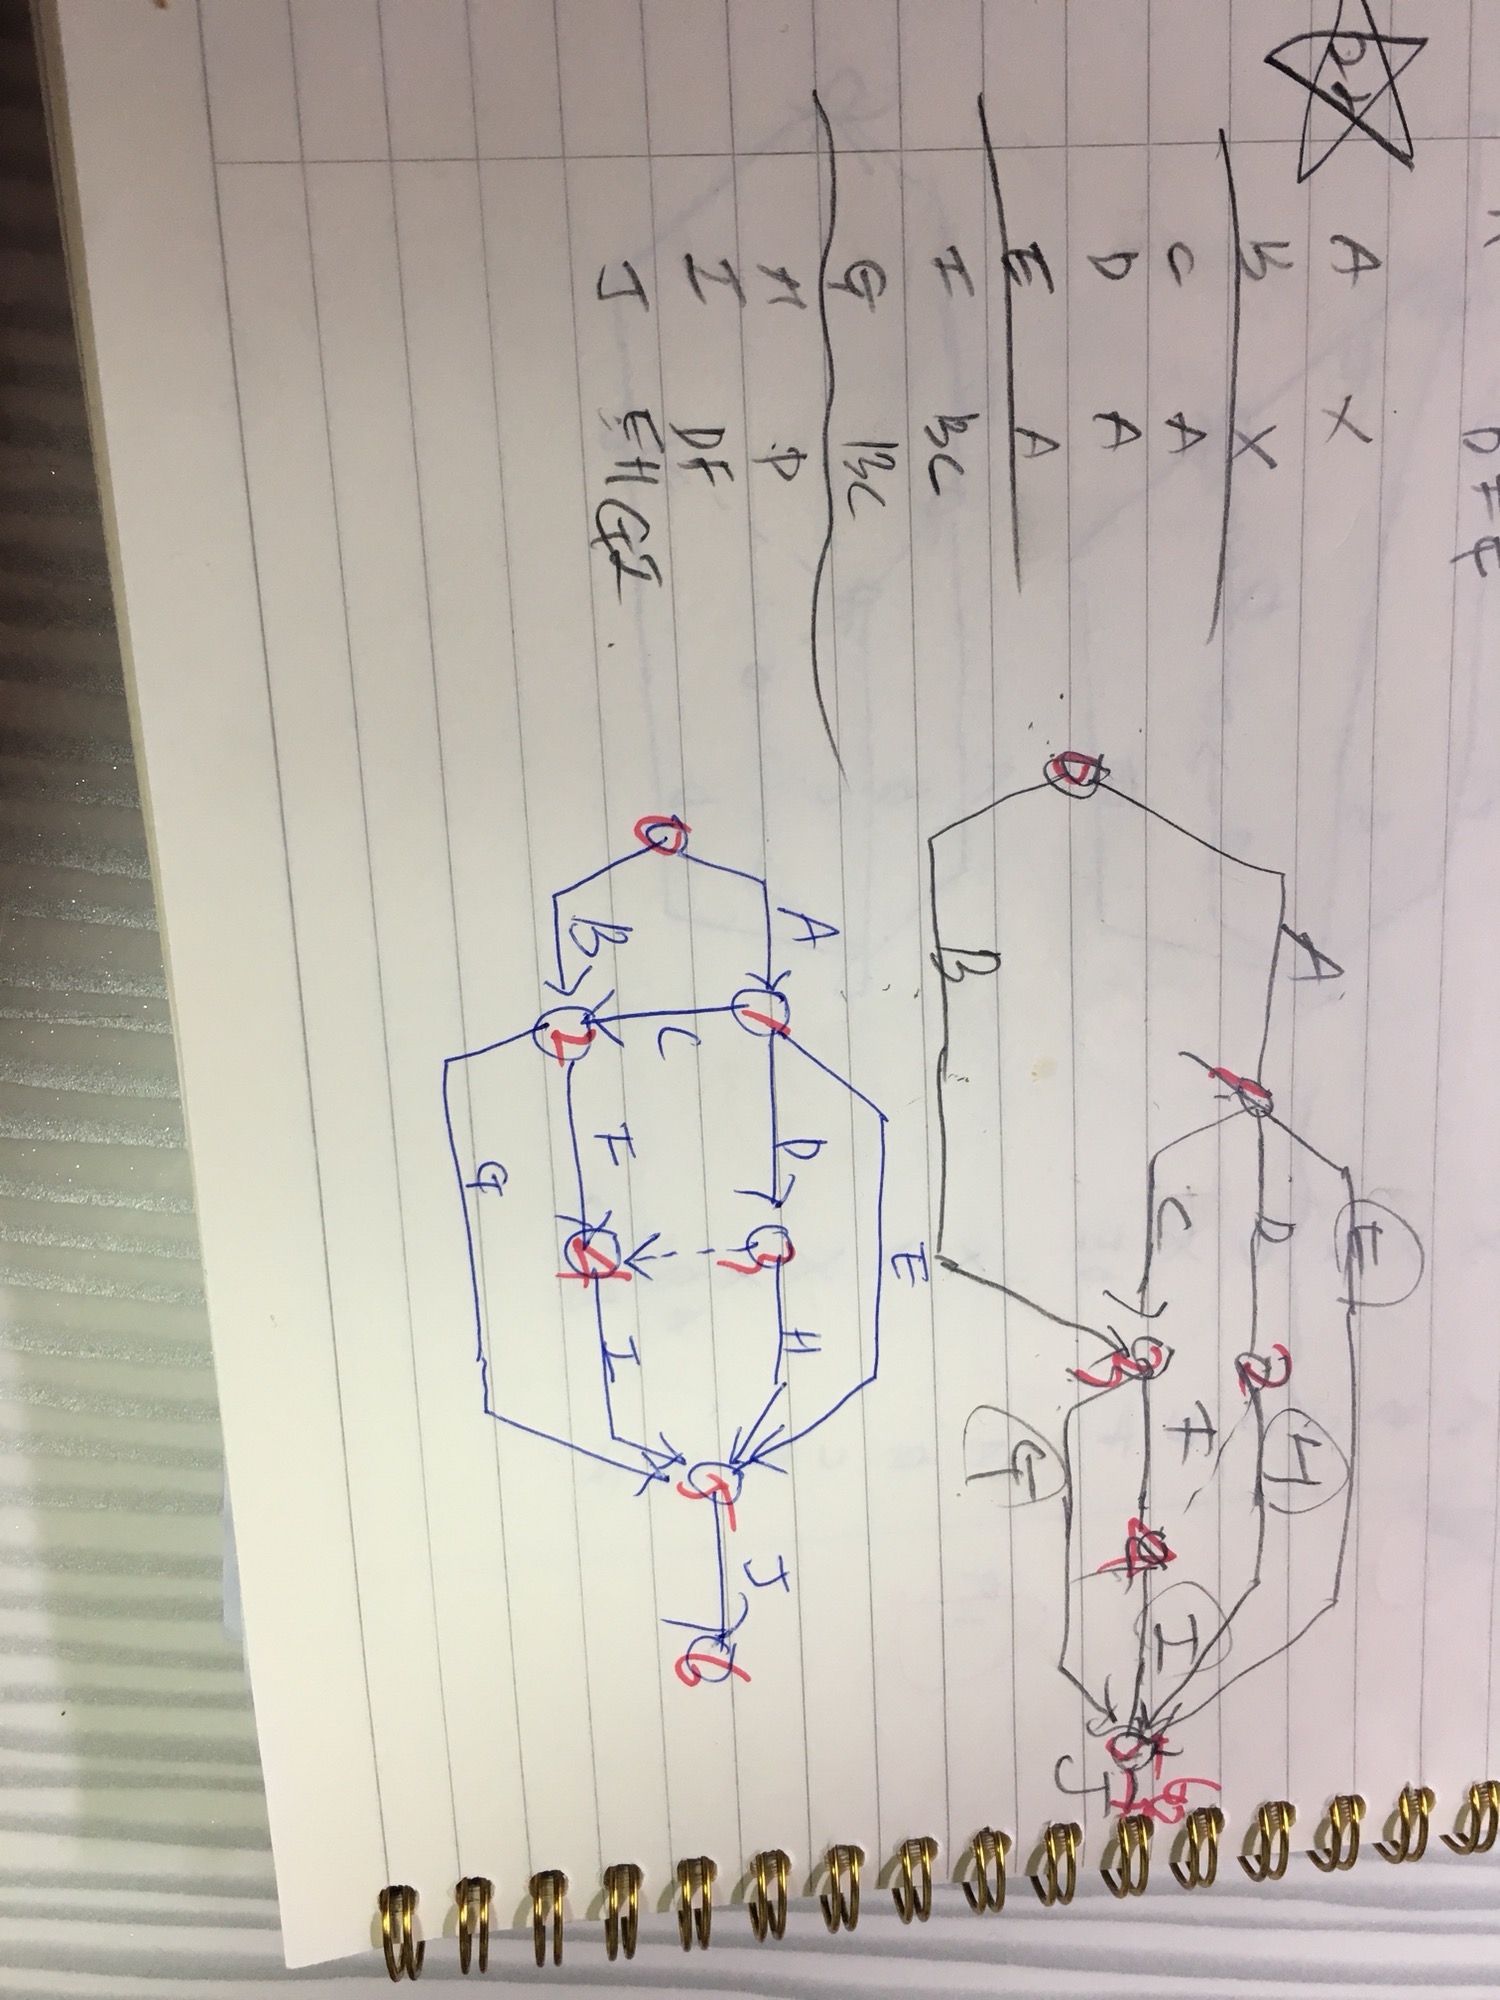 A X
B X
C A
D A
E A
F BC
G BC
H D
I DF
J EHGI
0 A 1 E
D 2 H
C 3 F 4 I 5 6
B G J
0 A 1 E
D 3 H
C 5 J 6
B 2 F 4 I
G